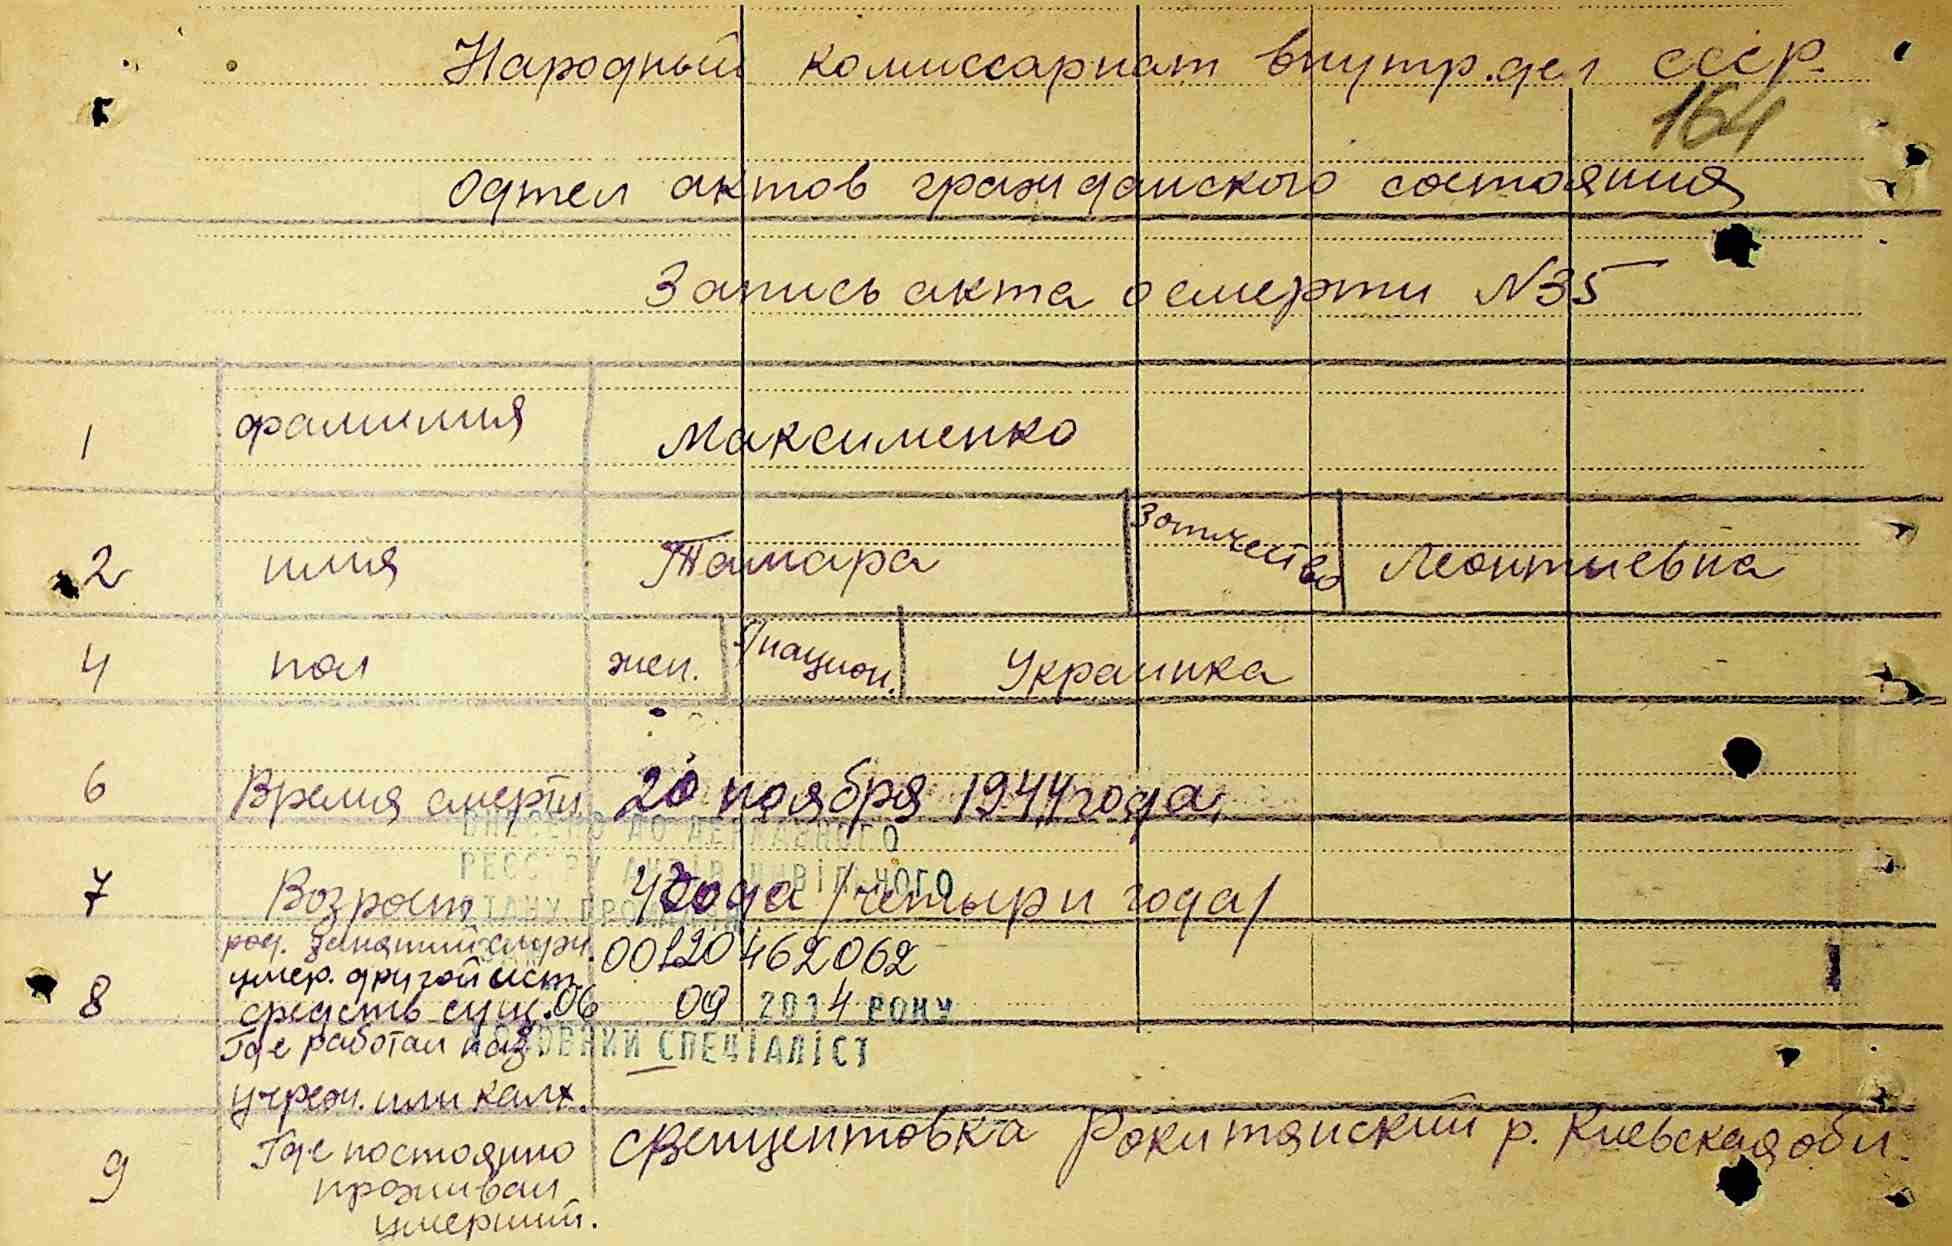 Народный комиссариат внутр.дел СССР.
164
Одтел актов гражданского состояния
Запись акта о смерти №35
1 фамилия Максименко
2 имия Тамара 3 отичество Леонтиевна
4 пол жен. 5 национ. Украинка
6 Время смерти 20 ноября 1944 года,
ВНЕСЕНО ДО ДЕРЖАВНОГО
РЕЄСТРУ АКТІВ ЦИВІЛЬНОГО
7 Возраст 4 года /четыри года/
СТАНУ ГРОМАДЯН
род. занятий служ. 00120462062
умер. другой ист.
8 средств сущ. 06 09 2014 РОКУ
Где работал наз. ГОЛОВНИЙ СПЕЦІАЛІСТ
учреж. или калх.
9 Где постояно проживал умерший. с Рокитянский р. Киевская обл.